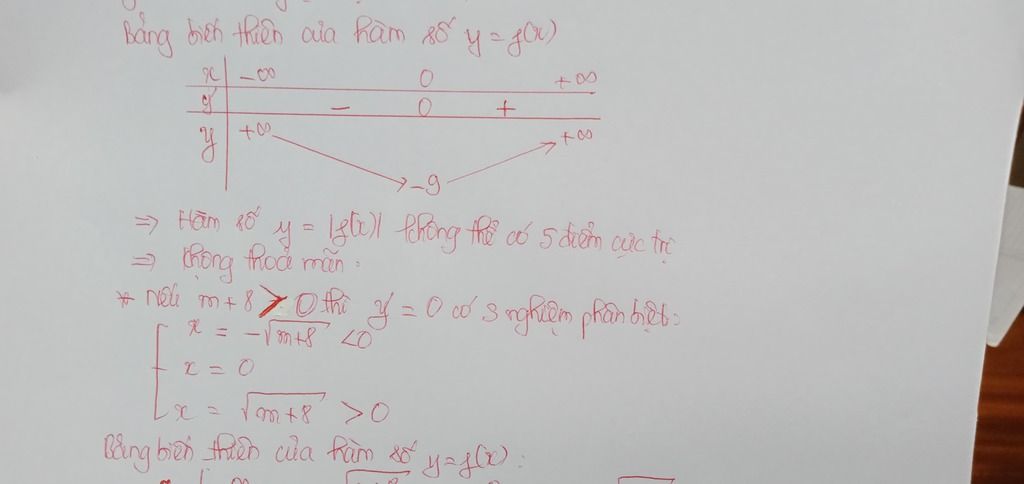 Bảng biến thiên của hàm số y = f(x)
x | -∞ 0 +∞
y' | - 0 +
y | +∞ -9 +∞
=> Hàm số y = |f(x)| không thể có 5 điểm cực trị
=> không thoả mãn.
* Nếu m+8 > 0 thì y' = 0 có 3 nghiệm phân biệt:
x = -√m+8 <0
x = 0
x = √m+8 > 0
Bảng biến thiên của hàm số y=f(x):